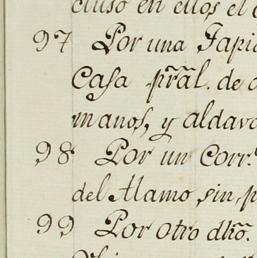 cluso en ellos el
97 Por una Tapia
Casa prãl. de
manos, y aldavo
98 Por un Corr.
del Alamo, sin,
99 Por otro dhõ.